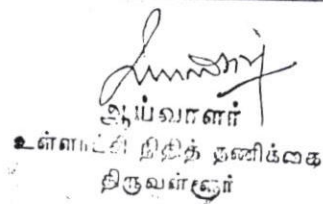 ஆய்வாளர்
உள்ளாட்சி நிதித் தணிக்கை
திருவள்ளூர்